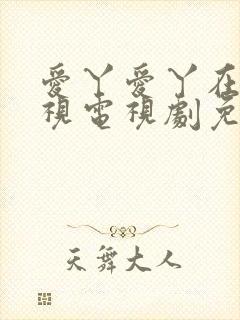 愛丫愛丫在
視電視劇免
天舞大人